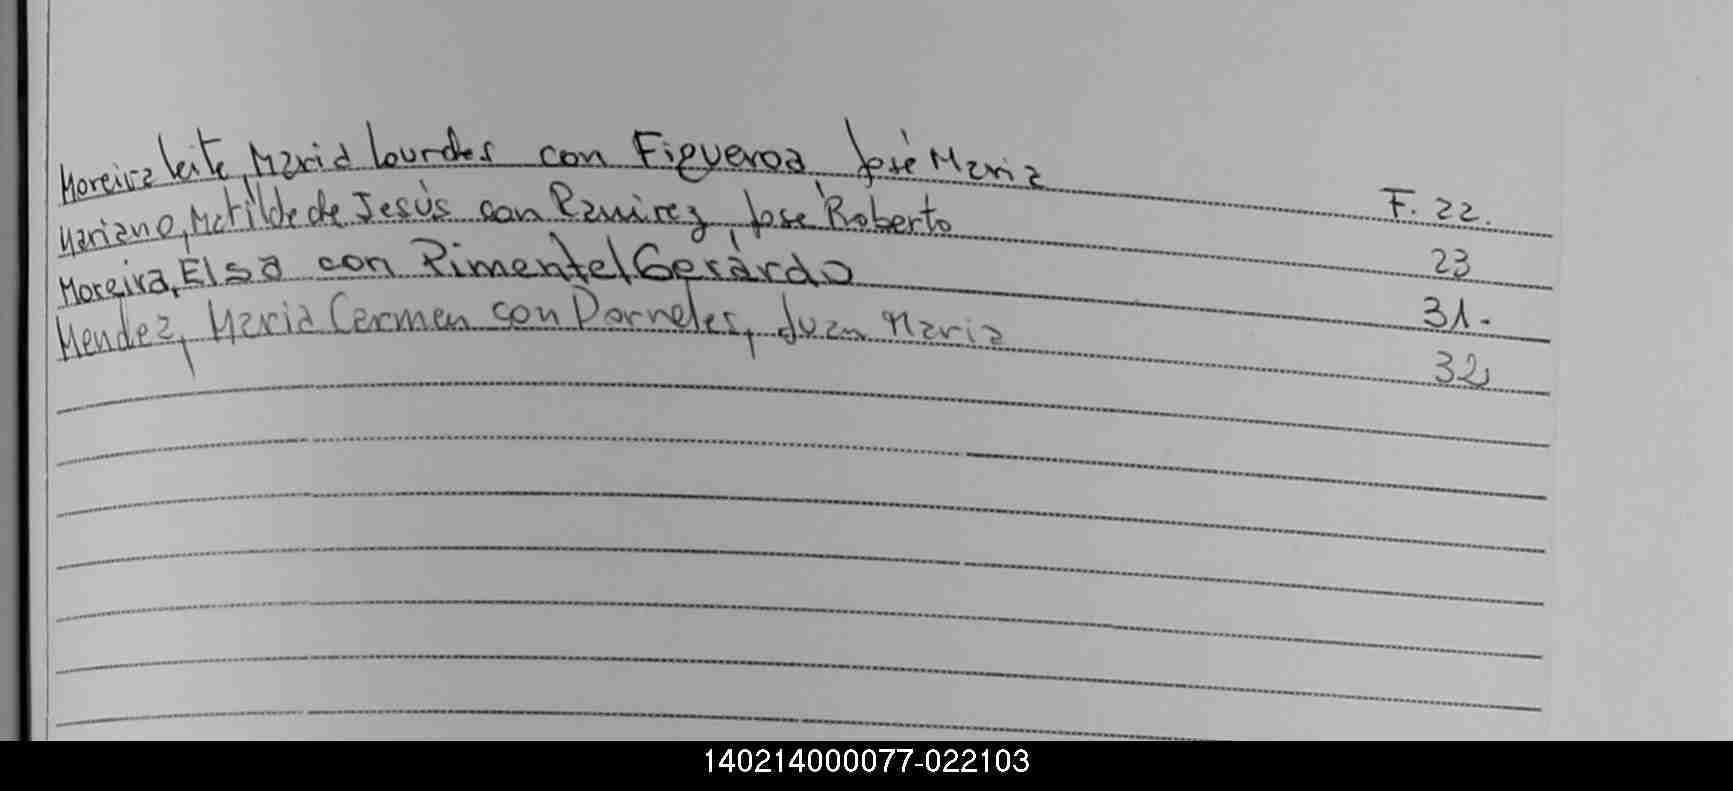 Moreira Leite, Maria Lourdes con Figueroa, José Maria F. 22.
Mariano, Matilde de Jesús con Ramirez, Jose Roberto 23
Moreira, Elsa con Pimentel Gerardo 31.
Mendez, Maria Carmen con Dorneles, Juan Maria 32
140214000077-022103